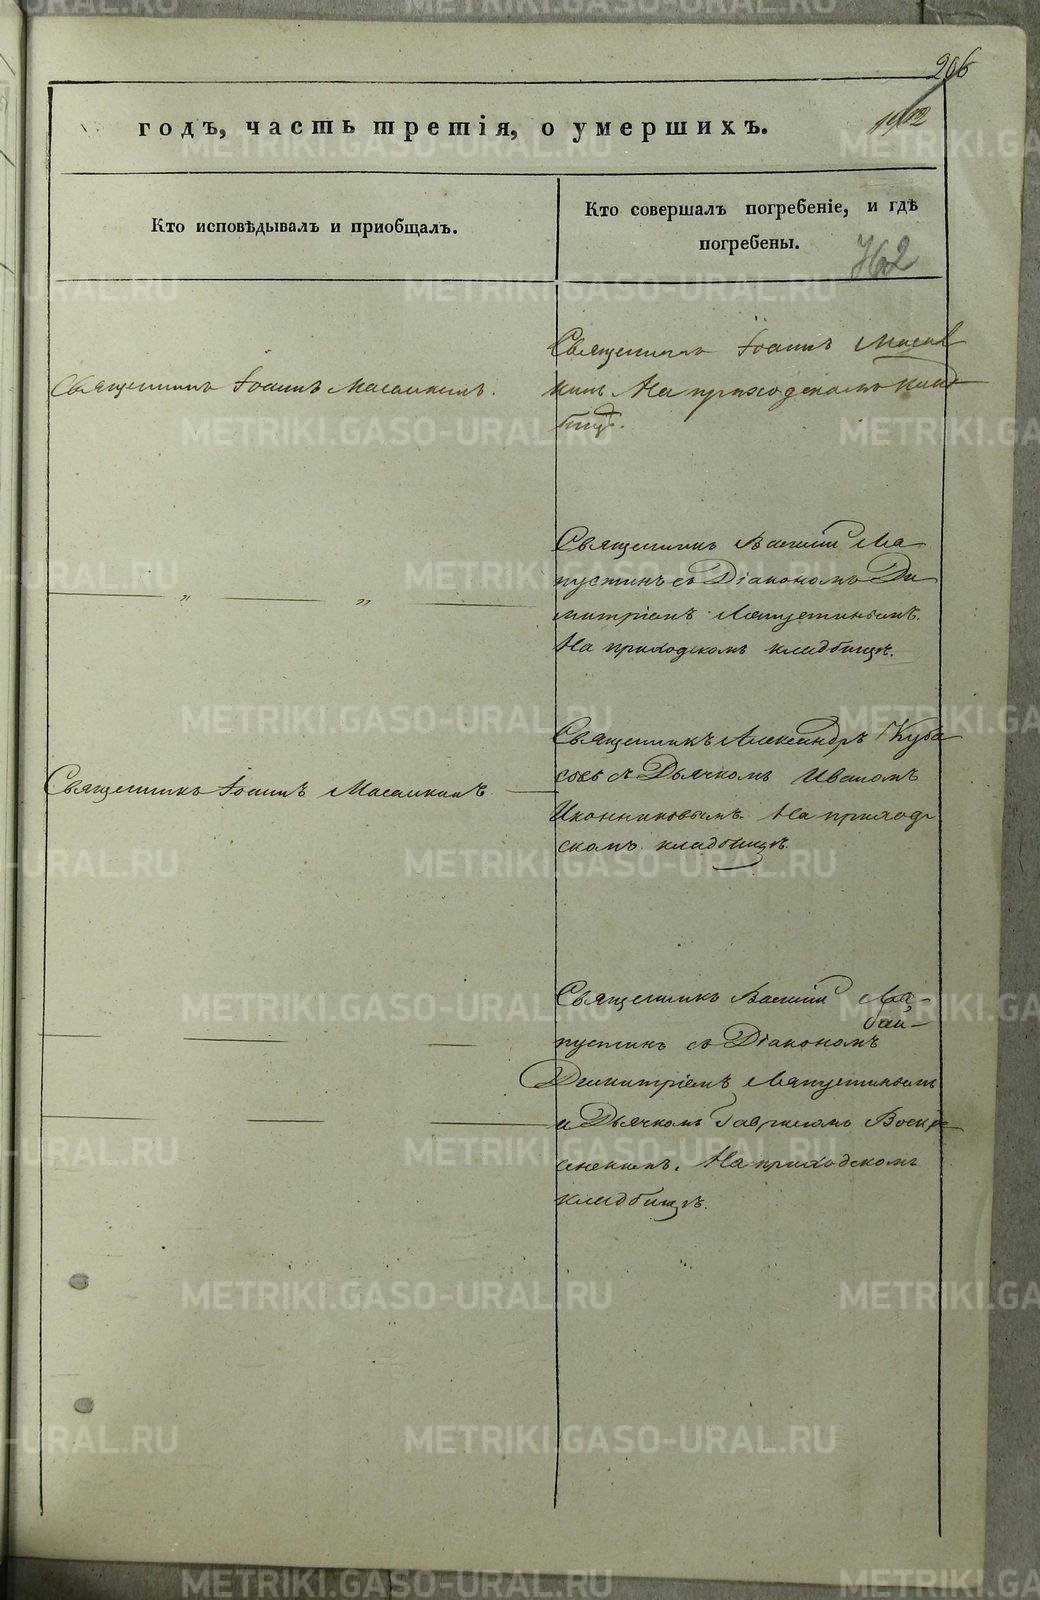 206
1412
годъ, часть третія, о умершихъ.
Кто исповѣдывалъ и приобщалъ.
Кто совершалъ погребеніе, и гдѣ
погребены.
762
Священникъ Іоаннъ
Священникъ Іоаннъ
На приходскомъ клад
бищѣ.
Священникъ Василій Ла
пустинъ съ Діакономъ Ди
митріемъ Лапустинымъ.
На приходскомъ кладбищѣ.
Священникъ Іоаннъ
Священникъ Александръ Куба
совъ съ Дьячкомъ Иваномъ
Иконниковымъ. На приход
скомъ кладбищѣ.
Священникъ Василій Ла-
пустинъ съ Діакономъ
Димитріемъ Лапустинымъ
и Дьячкомъ Гавріиломъ Воскре
сенскимъ. На приходскомъ
кладбищѣ.
METRIKI.GASO-URAL.RU